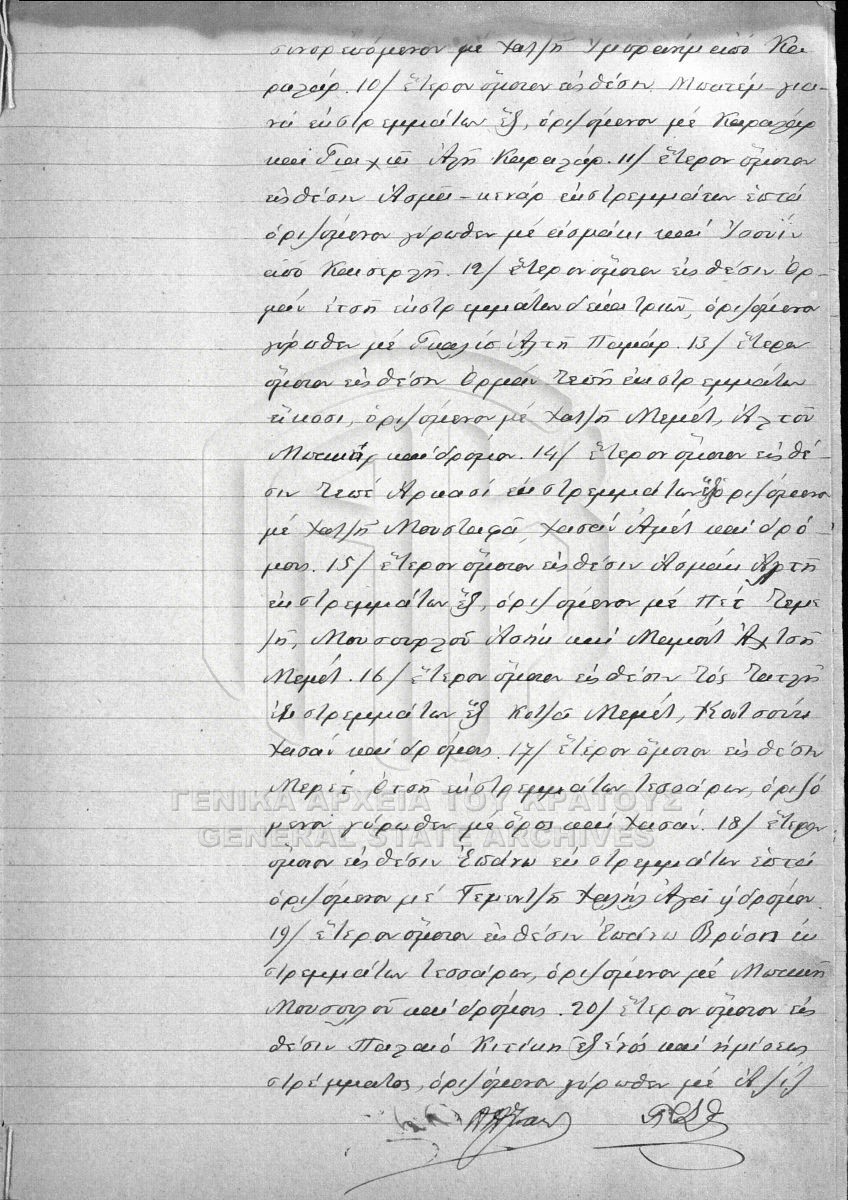 συνορευόμενον μέ Χατζῆ Ἰμπραήμ ἀπό Κα-
ραλάρ. 10/ ἕτερον ὅμοιον εἰς θέσιν Μπατέμ-για-
νί ἐκ στρεμμάτων ἕξ, ὁριζόμενον μέ Καραλάρ
καί Γιαχιᾶ Ἀλῆ Καραλάρ. 11/ ἕτερον ὅμοιον
εἰς θέσιν Ἀσμᾶ-κενάρ ἐκ στρεμμάτων ἑπτά
ὁριζόμενον γύρωθεν μέ ἀσμάκι καί Ἰσουίν
ἀπό Καισερλῆ. 12/ ἕτερον ὅμοιον εἰς θέσιν Ὀρ-
μάν ἐτσῆ ἐκ στρεμμάτων δεκατριῶν, ὁριζόμενον
γύρωθεν μέ Γιαλίσ Ἀλτῆ Παμάρ. 13/ ἕτερον
ὅμοιον εἰς θέσιν Ὀρμάν Τεσῆ ἐκ στρεμμάτων
εἴκοσι, ὁριζόμενον μέ Χατζῆ Μεμέτ, Ἀλτοῦ
Μπεκήρ καί δρόμον. 14/ ἕτερον ὅμοιον εἰς θέ-
σιν Τεπέ Ἀρκασί ἐκ στρεμμάτων ἕξ ὁριζόμενον
μέ Χατζῆ Μουσταφᾶ, Χασάν Ἀμέτ καί δρό-
μον. 15/ ἕτερον ὅμοιον εἰς θέσιν Ἀσμάκ Ἀλτῆ
ἐκ στρεμμάτων ἕξ, ὁριζόμενον μέ Πέτ Τεμε
ζῆ, Μουσουρλοῦ Ἀσήκ καί Μεμέτ Ἀχτσῆ
Μεμέτ. 16/ ἕτερον ὅμοιον εἰς θέσιν Τός Τατλῆ
ἐκ στρεμμάτων ἕξ Κοτζᾶ Μεμέτ, Κατσούν
Χασάν καί δρόμος. 17/ ἕτερον ὅμοιον εἰς θέσιν
Μερέτ Ὀτσῆ ἐκ στρεμμάτων τεσσάρων, ὁριζό
μενον γύρωθεν μέ ὄρος καί Χασάν. 18/ ἕτερον
ὅμοιον εἰς θέσιν Ἐπάνω ἐκ στρεμμάτων ἑπτά
ὁριζόμενον μέ Γεμεντζῆ Χαλήλ Ἀγᾶ ἤ δρόμον.
19/ ἕτερον ὅμοιον εἰς θέσιν Ἐπάνω Βρύση ἐκ
στρεμμάτων τεσσάρων, ὁριζόμενον μέ Μπεκῆ
Μουσουλοῦ καί δρόμος. 20/ ἕτερον ὅμοιον εἰς
θέσιν Παλαιό Κιτίκη ἐξ ἑνός καί ἡμίσεως
στρέμματος, ὁριζόμενον γύρωθεν μέ Ἀζίζ
ΓΕΝΙΚΑ ΑΡΧΕΙΑ ΤΟΥ ΚΡΑΤΟΥΣ
GENERAL STATE ARCHIVES